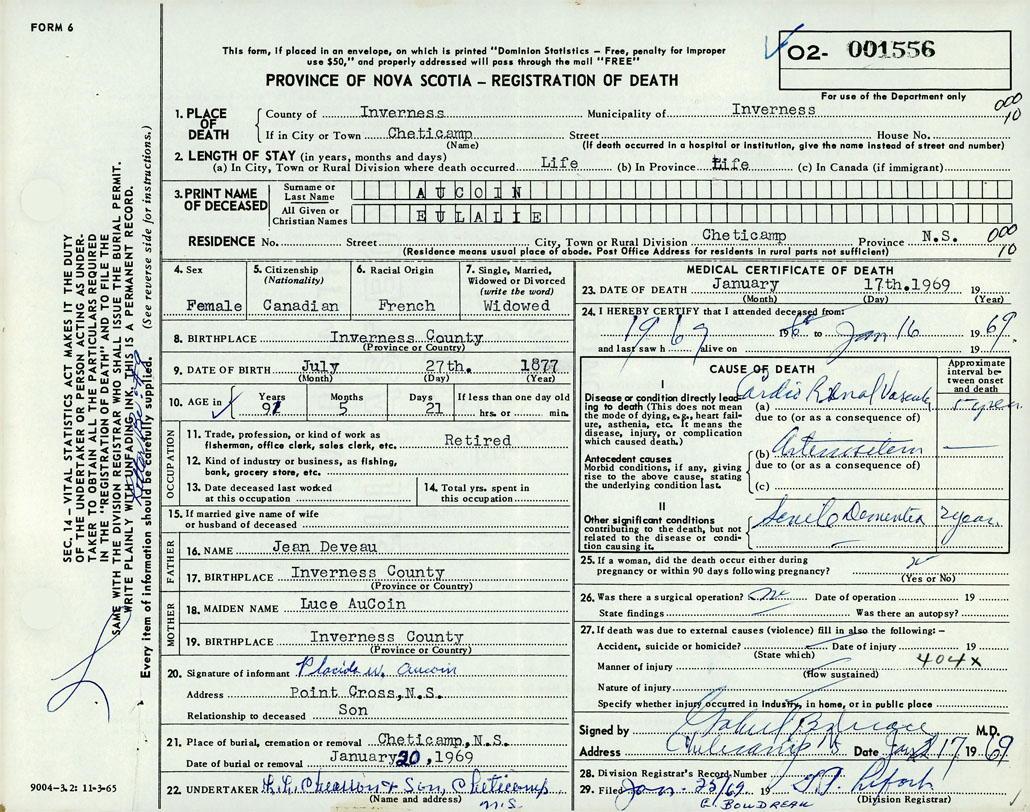 FORM 6
This form, if placed in an envelope, on which is printed "Dominion Statistics – Free, penalty for improper
use $50," and properly addressed will pass through the mail "FREE"
PROVINCE OF NOVA SCOTIA – REGISTRATION OF DEATH
02- 001556
For use of the Department only
000
10
1. PLACE OF DEATH { County of Inverness Municipality of Inverness
If in City or Town Cheticamp Street House No.
(Name) (If death occurred in a hospital or institution, give the name instead of street and number)
2. LENGTH OF STAY (in years, months and days)
(a) In City, Town or Rural Division where death occurred Life (b) In Province Life (c) In Canada (if immigrant)
3. PRINT NAME OF DECEASED
Surname or Last Name AUCOIN
All Given or Christian Names EULALIE
RESIDENCE No. Street City, Town or Rural Division Cheticamp Province N.S. 000
10
(Residence means usual place of abode. Post Office Address for residents in rural parts not sufficient)
4. Sex
Female
5. Citizenship
(Nationality)
Canadian
6. Racial Origin
French
7. Single, Married,
Widowed or Divorced
(write the word)
Widowed
8. BIRTHPLACE Inverness County
(Province or Country)
9. DATE OF BIRTH July 27th. 1877
(Month) (Day) (Year)
10. AGE in Years Months Days If less than one day old
91 5 21 hrs. or min.
OCCUPATION
11. Trade, profession, or kind of work as
fisherman, office clerk, sales clerk, etc. Retired
12. Kind of industry or business, as fishing,
bank, grocery store, etc.
13. Date deceased last worked
at this occupation
14. Total yrs. spent in
this occupation
15. If married give name of wife
or husband of deceased
FATHER
16. NAME Jean Deveau
17. BIRTHPLACE Inverness County
(Province or Country)
MOTHER
18. MAIDEN NAME Luce AuCoin
19. BIRTHPLACE Inverness County
(Province or Country)
20. Signature of informant Placide W. Aucoin
Address Point Cross, N.S.
Relationship to deceased Son
21. Place of burial, cremation or removal Cheticamp, N.S.
Date of burial or removal January 20, 1969
22. UNDERTAKER Chiasson & Son, Cheticamp
(Name and address) N.S.
MEDICAL CERTIFICATE OF DEATH
23. DATE OF DEATH January 17th.1969 19
(Month) (Day) (Year)
24. I HEREBY CERTIFY that I attended deceased from:
1969 19 to Jan 16 1969
and last saw h alive on 19
CAUSE OF DEATH
Approximate
interval be-
tween onset
and death
I
Disease or condition directly lead-
ing to death (This does not mean
the mode of dying, e.g., heart fail-
ure, asthenia, etc. It means the
disease, injury, or complication
which caused death.)
(a) Cardio Renal Vascular 5 years
due to (or as a consequence of)
Antecedent causes
Morbid conditions, if any, giving
rise to the above cause, stating
the underlying condition last.
(b)
due to (or as a consequence of)
(c)
II
Other significant conditions
contributing to the death, but not
related to the disease or condi-
tion causing it.
Senile Dementia 2 years
25. If a woman, did the death occur either during
pregnancy or within 90 days following pregnancy?
(Yes or No)
26. Was there a surgical operation? no Date of operation 19
State findings Was there an autopsy?
27. If death was due to external causes (violence) fill in also the following: –
Accident, suicide or homicide? Date of injury 19
(State which)
404X
Manner of injury
(How sustained)
Nature of injury
Specify whether injury occurred in industry, in home, or in public place
Signed by M.D.
Address Cheticamp NS Date Jan 17 1969
28. Division Registrar's Record Number
29. Filed Jan. 25/69 19
E. BOUDREAU (Division Registrar)
SEC. 14 – VITAL STATISTICS ACT MAKES IT THE DUTY
OF THE UNDERTAKER OR PERSON ACTING AS UNDER-
TAKER TO OBTAIN ALL THE PARTICULARS REQUIRED
IN THE "REGISTRATION OF DEATH" AND TO FILE THE
SAME WITH THE DIVISION REGISTRAR WHO SHALL ISSUE THE BURIAL PERMIT.
WRITE PLAINLY WITH UNFADING INK, THIS IS A PERMANENT RECORD.
Every item of information should be carefully supplied. (See reverse side for instructions.)
9004-3.2: 11-3-65